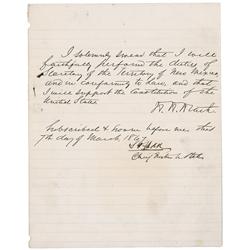 I solemnly swear that I will
faithfully perform the duties of
Secretary of the Territory of New Mexico
and in conformity to law, and that
I will support the Constitution of the
United States
Subscribed & sworn before me this
7th day of March 1867
Chief Justice